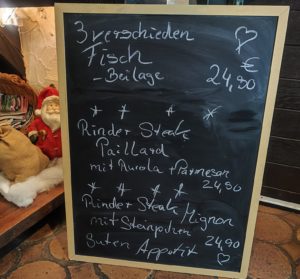 3 verschieden
Fisch €
- Beilage 24,90
Rinder Steak
Paillard
mit Rucola + Parmesan
24,90
Rinder Steak/Mignon
mit Steinpilzen
24,90
guten Appetit